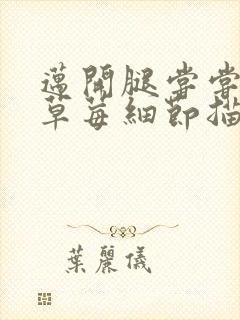 邁開腿嘗嘗
草莓細節描
葉麗儀